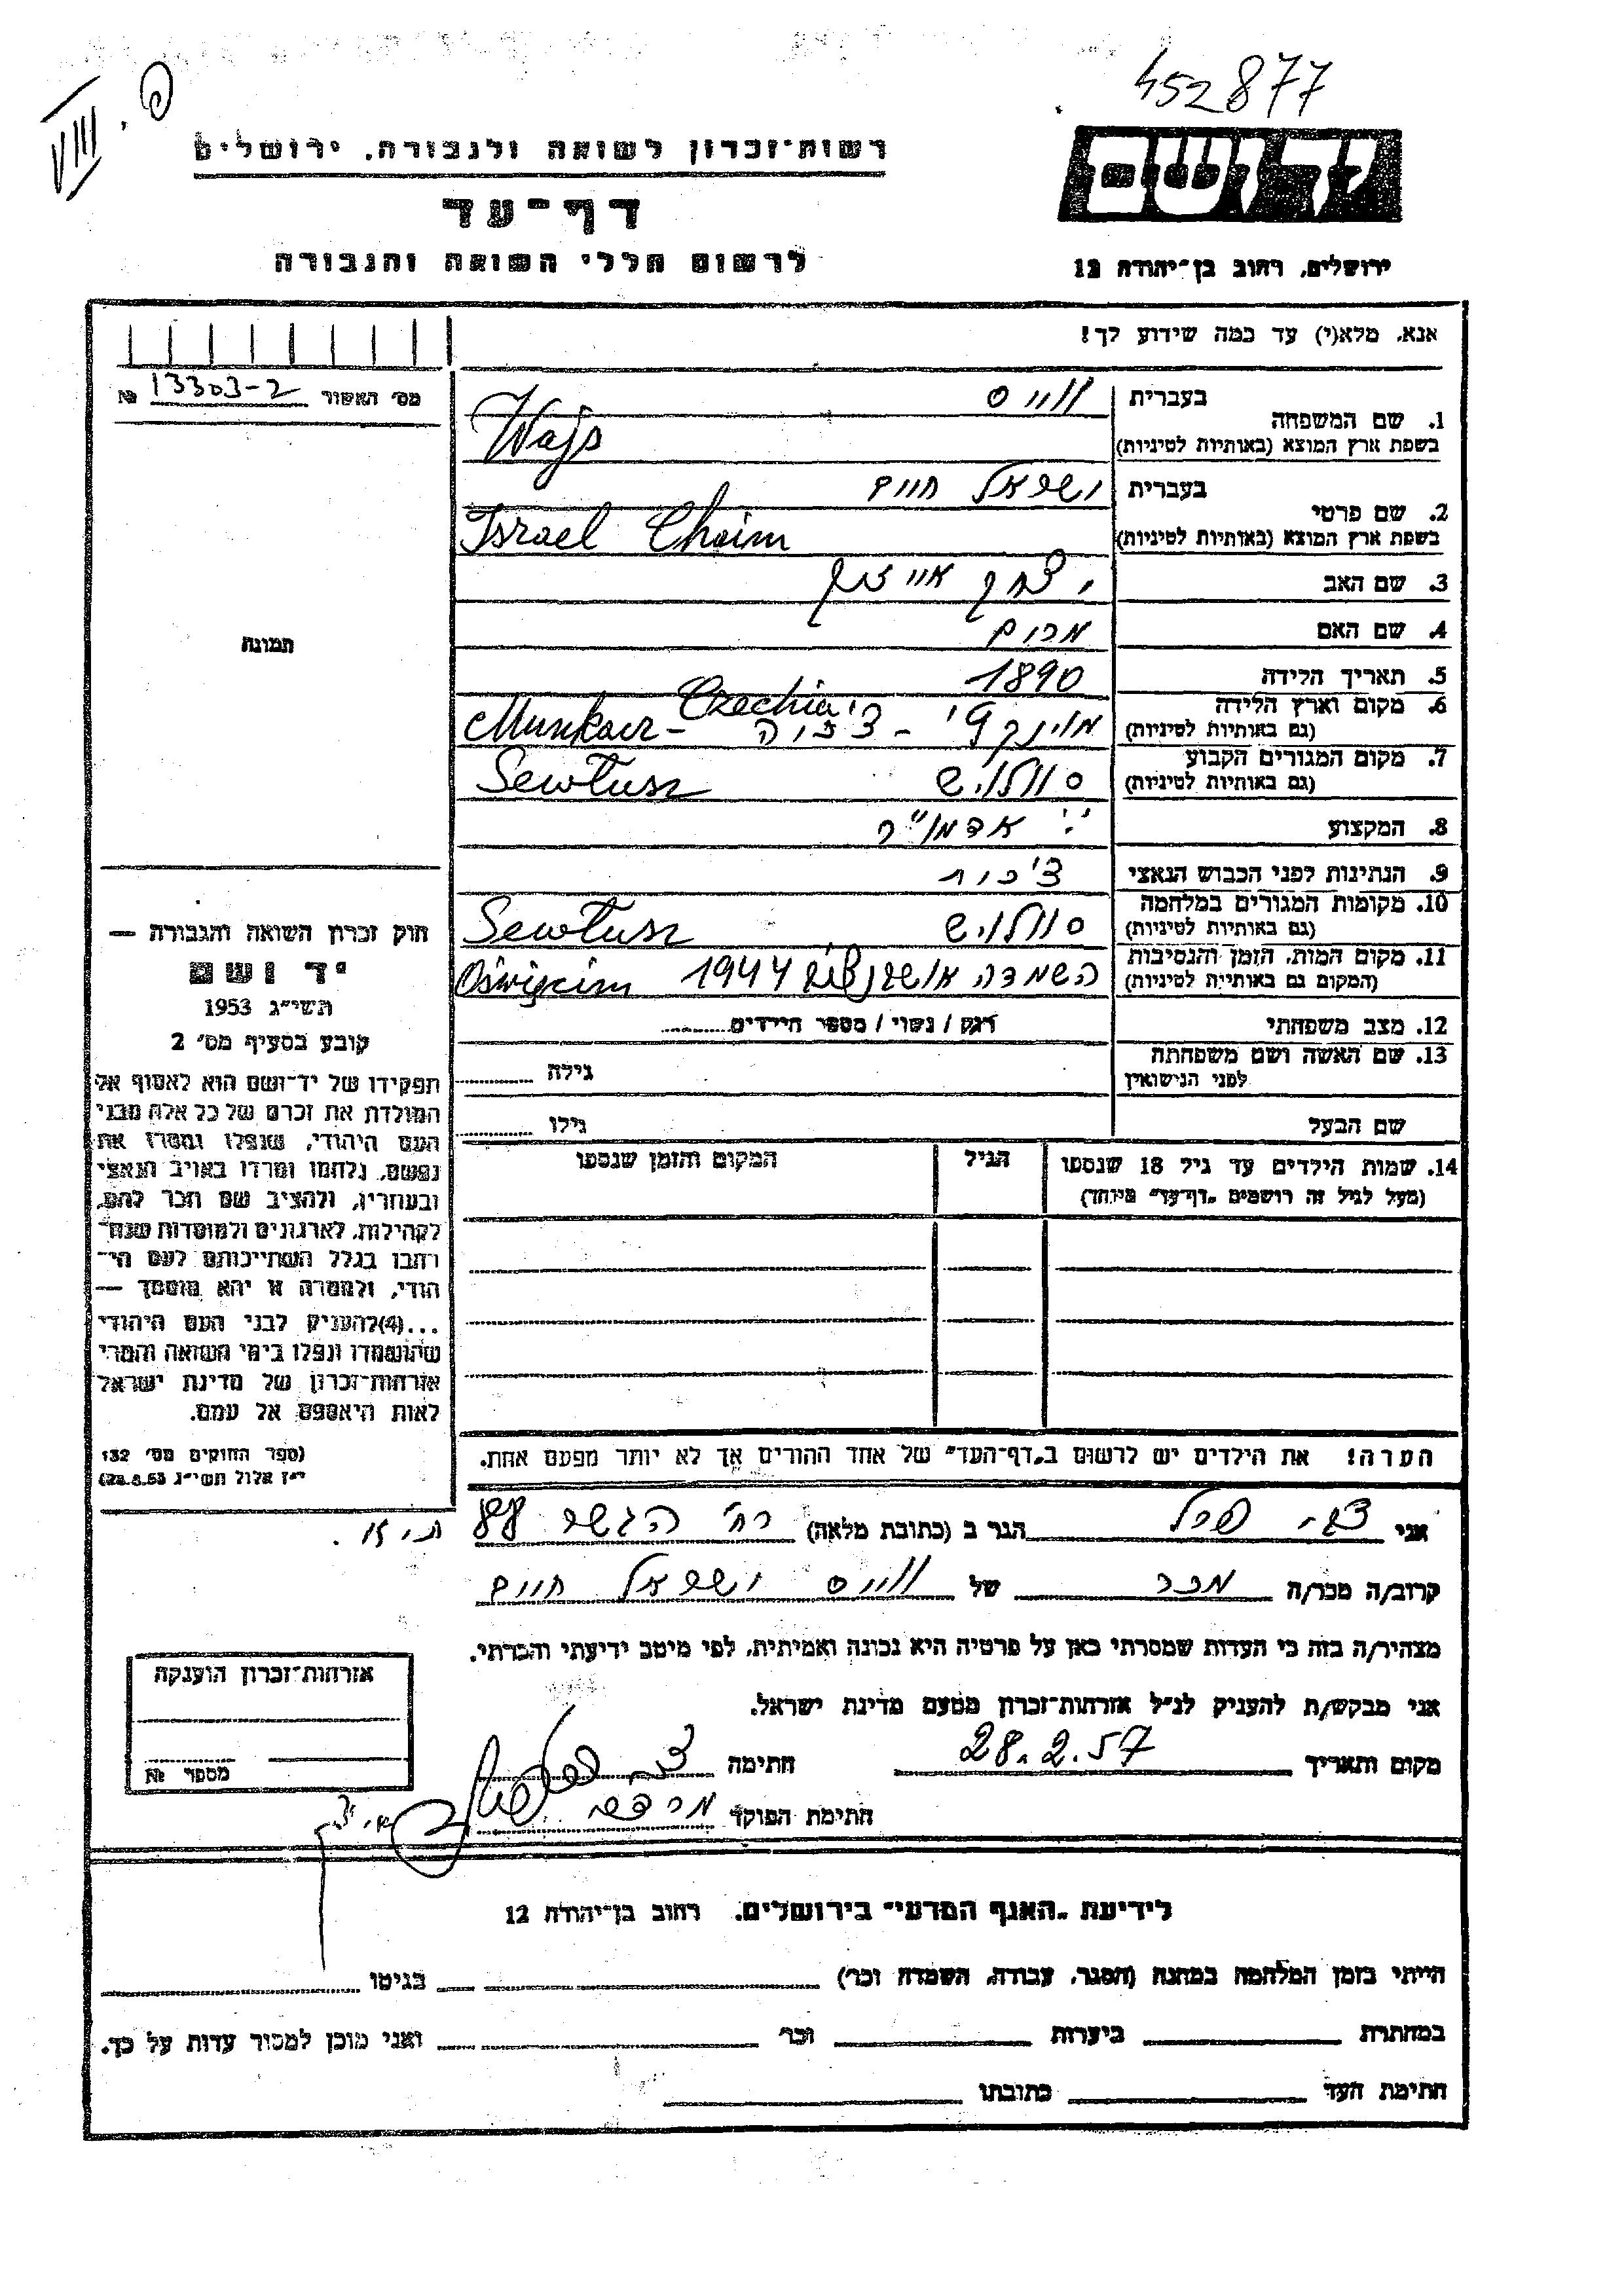 452877
VIII. פ
ידושם
ירושלים, רחוב בן־יהודה 12
רשות־זכרון לשואה ולגבורה, ירושלים
דף־עד
לרשום חללי השואה והגבורה
אנא, מלא(י) עד כמה שידוע לך!
מס׳ האשור 13303-2 №
תמונה
1. שם המשפחה
בעברית ווייס
בשפת ארץ המוצא (באותיות לטיניות) Wajs
2. שם פרטי
בעברית ישראל חיים
בשפת ארץ המוצא (באותיות לטיניות) Israel Chaim
3. שם האב יצחק אייזיק
4. שם האם מרים
5. תאריך הלידה 1890
6. מקום וארץ הלידה
(גם באותיות לטיניות) מונקץ׳ - צ׳כיה Munkacz - Czechia
7. מקום המגורים הקבוע
(גם באותיות לטיניות) סוולוש Sewlusz
8. המקצוע אדמו"ר
9. הנתינות לפני הכבוש הנאצי צ׳כית
10. מקומות המגורים במלחמה
(גם באותיות לטיניות) סוולוש Sewlusz
11. מקום המות, הזמן והנסיבות
(המקום גם באותיות לטיניות) השמדה אושוויץ 1944 Oświęcim
12. מצב משפחתי רוק / נשוי / מספר הילדים
13. שם האשה ושם משפחתה
לפני הנישואין גילה
שם הבעל גילו
14. שמות הילדים עד גיל 18 שנספו
(מעל לגיל זה רושמים „דף־עד״ מיוחד)
הגיל
המקום והזמן שנספו
הערה! את הילדים יש לרשום ב„דף־העד״ של אחד ההורים אך לא יותר מפעם אחת.
חוק זכרון השואה והגבורה —
יד ושם
תשי״ג 1953
קובע בסעיף מס׳ 2
תפקידו של יד־ושם הוא לאסוף אל
המולדת את זכרם של כל אלה מבני
העם היהודי, שנפלו ומסרו את
נפשם, נלחמו ומרדו באויב הנאצי
ובעוזריו, ולהציב שם וזכר להם,
לקהילות, לארגונים ולמוסדות שנח־
רבו בגלל השתייכותם לעם הי־
הודי, ולמטרה זו יהא מוסמך —
...(4) להעניק לבני העם היהודי
שהושמדו ונפלו בימי השואה והמרי
אזרחות־זכרון של מדינת ישראל
לאות היאספם אל עמם.
(ספר החוקים מס׳ 132
י״ז אלול תשי״ג 28.8.53)
אני צבי הגר ב (כתובת מלאה) רח׳ הגשר 88 ת״א.
קרוב/ה מכר/ה מכר של ווייס ישראל חיים
מצהיר/ה בזה כי העדות שמסרתי כאן על פרטיה היא נכונה ואמיתית, לפי מיטב ידיעתי והכרתי.
אני מבקש/ת להעניק לנ״ל אזרחות־זכרון מטעם מדינת ישראל.
מקום ותאריך 28.2.57 חתימה
חתימת הפוקד
אזרחות־זכרון הוענקה
מספר №
לידיעת „האגף המדעי״ בירושלים, רחוב בן־יהודה 12
הייתי בזמן המלחמה במחנה (הסגר, עבודה, השמדה וכר׳) בגיטו
במחתרת ביערות וכר׳ ואני מוכן למסור עדות על כך.
חתימת העד כתובתו